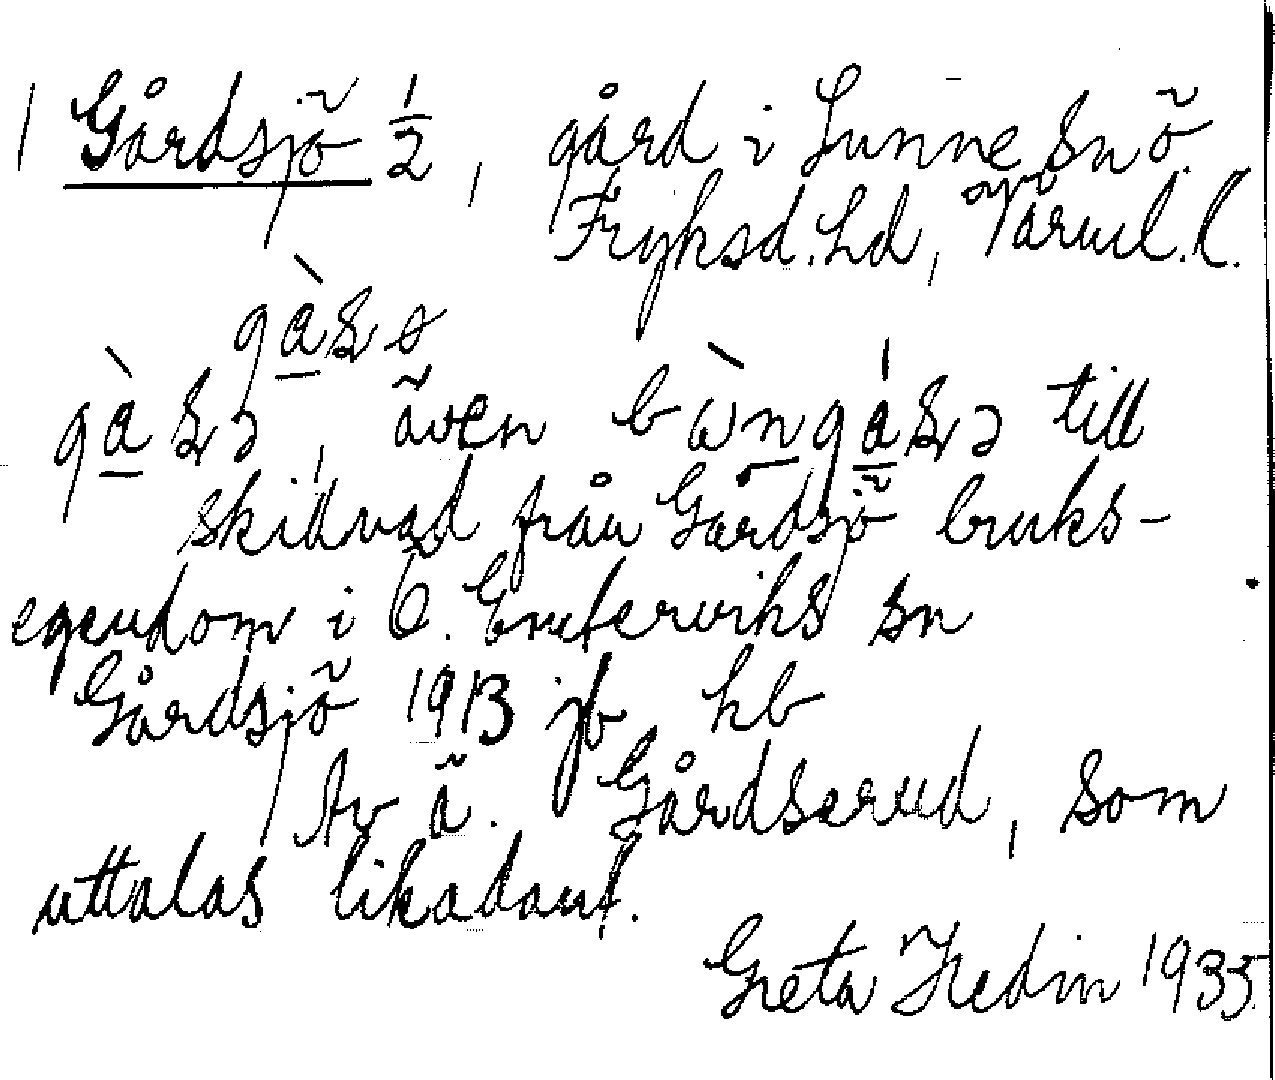 1 Gårdsjö 1/2, gård i Sunne sn ö.
Fryksd. hd, Värml. l.
gàsə, även till
skillnad från Gårdsjö bruks-
egendom i Ö. Emterviks sn
Gårdsjö 1913 jb hb
Av ä. Gårdserud, som
uttalas likadant.
Greta Hedin 1935